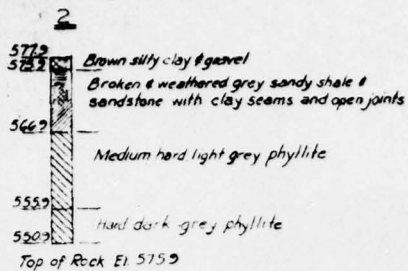 2
577.9
575.9
Brown silty clay & gravel
Broken & weathered grey sandy shale &
sandstone with clay seams and open joints
566.9
Medium hard light grey phyllite
555.9
Hard dark-grey phyllite
550.9
Top of Rock El. 575.9